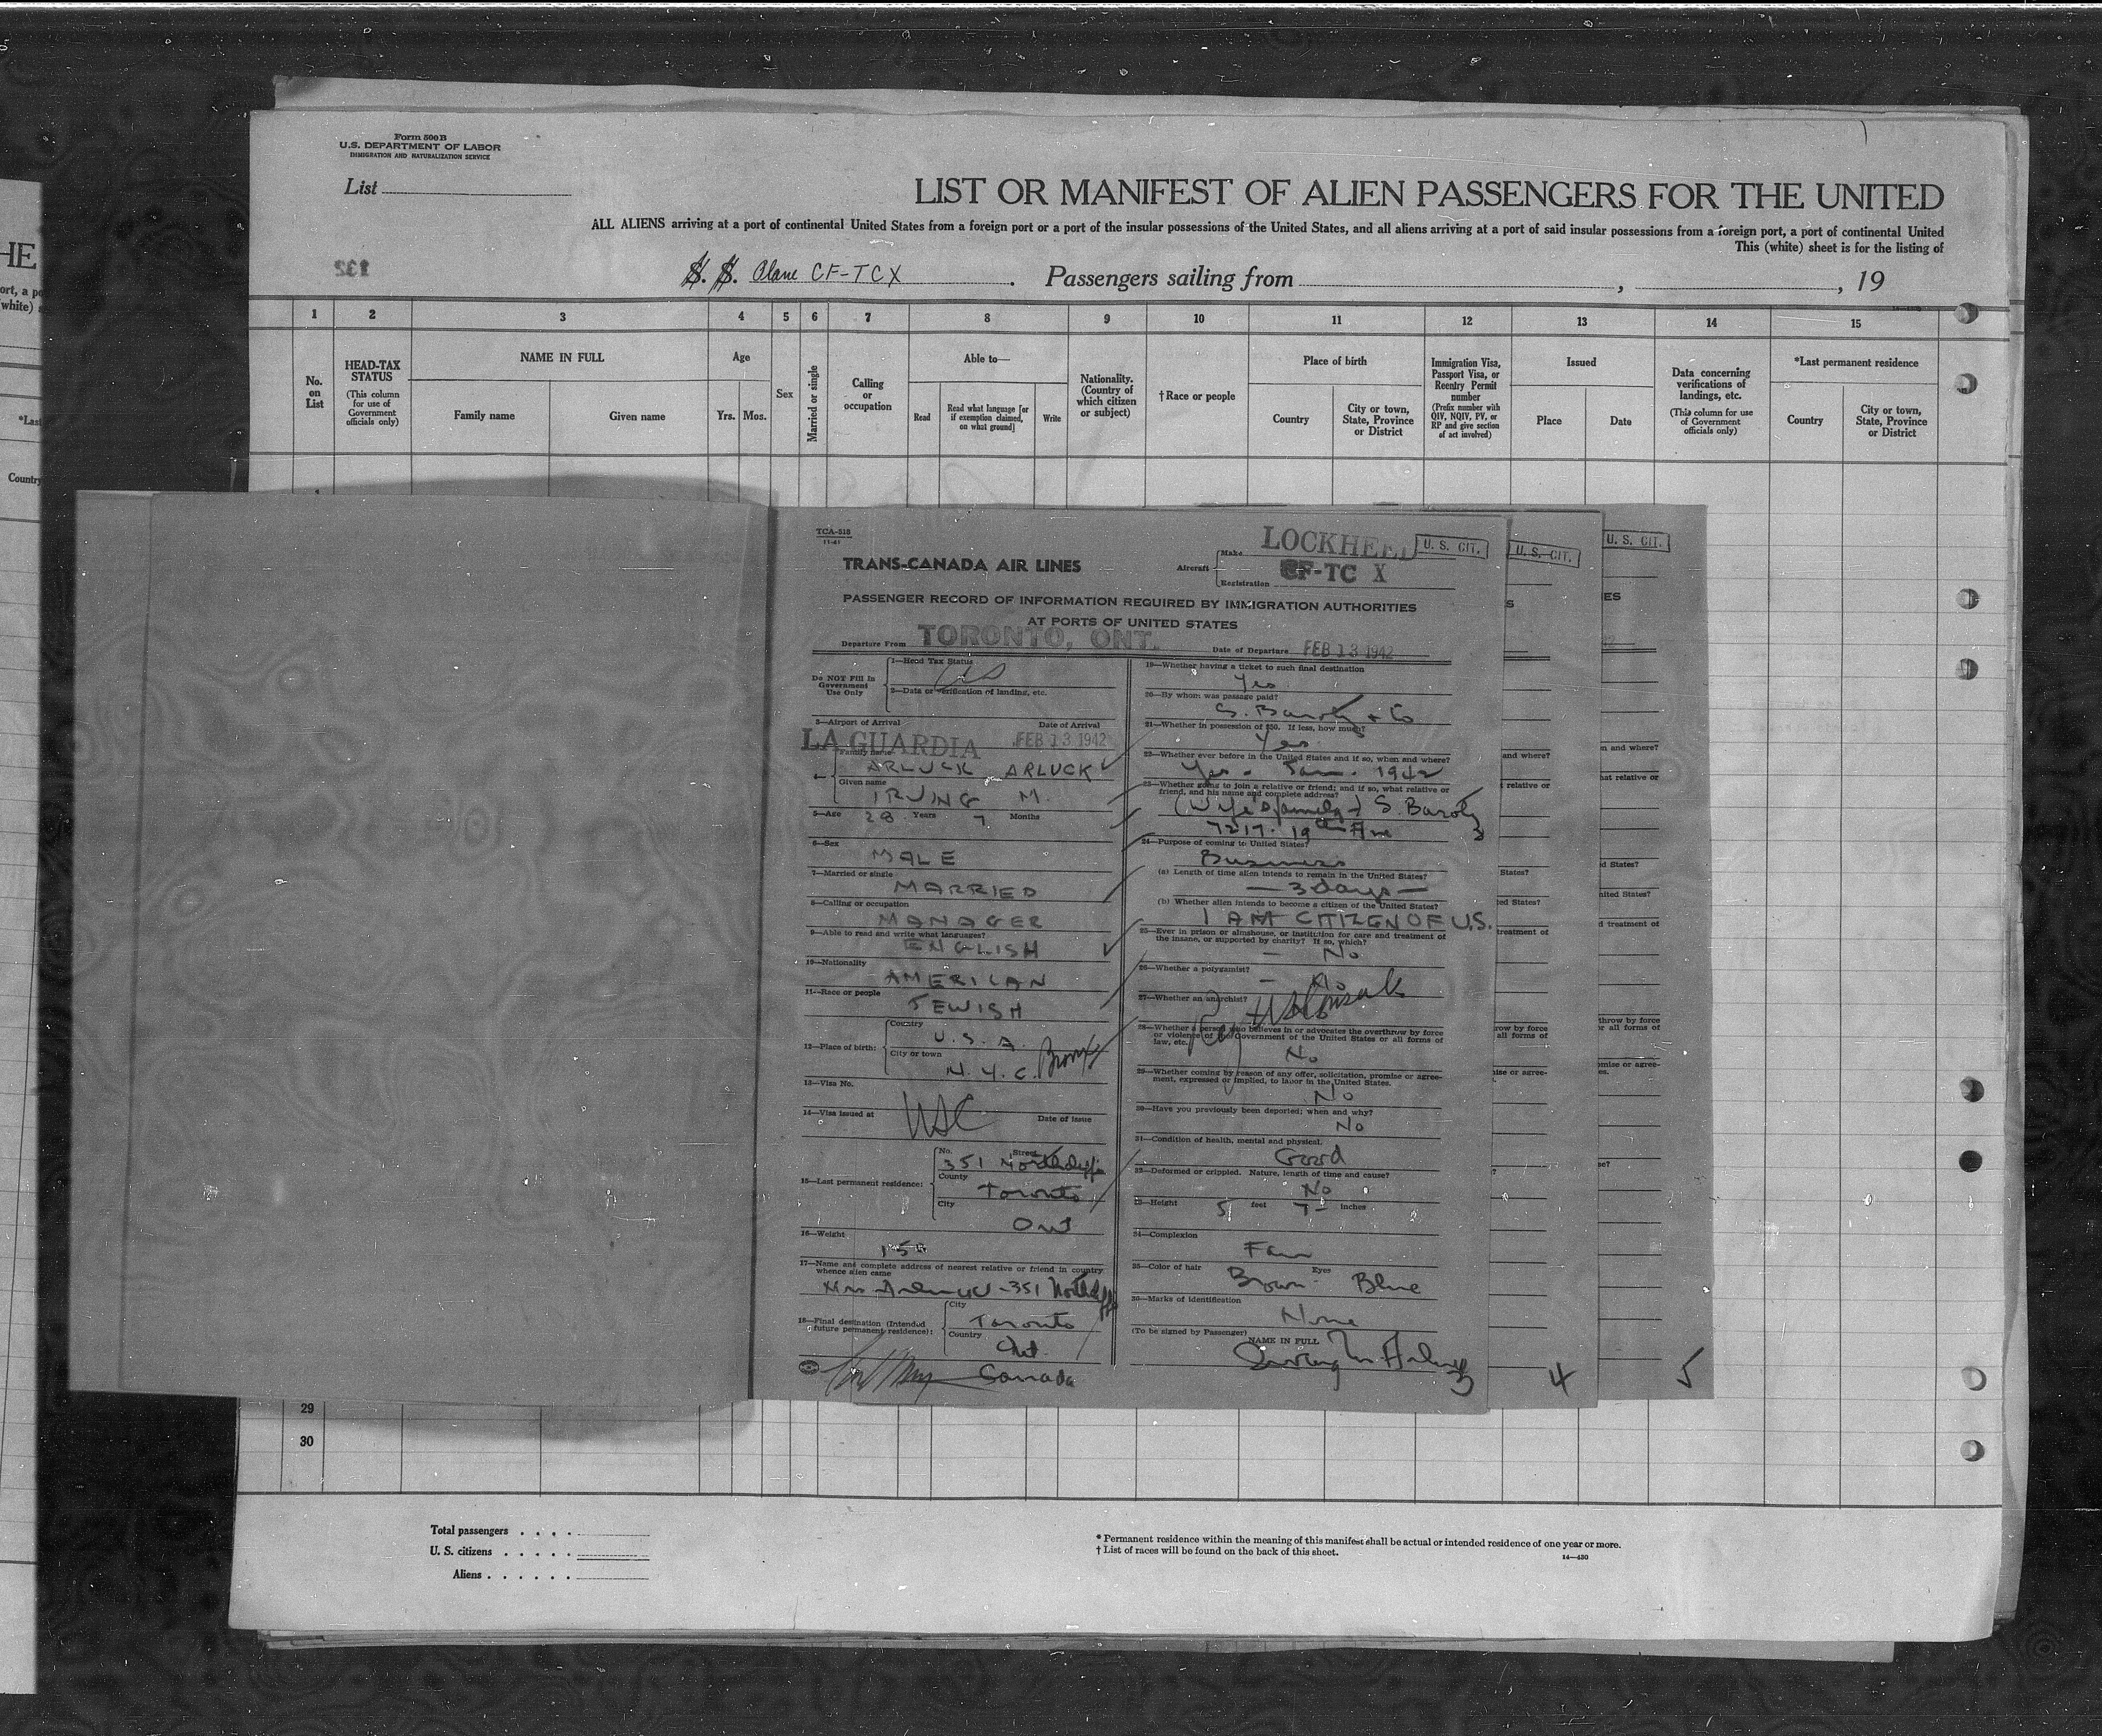 Form 500B
U.S. DEPARTMENT OF LABOR
IMMIGRATION AND NATURALIZATION SERVICE
List
LIST OR MANIFEST OF ALIEN PASSENGERS FOR THE UNITED
ALL ALIENS arriving at a port of continental United States from a foreign port or a port of the insular possessions of the United States, and all aliens arriving at a port of said insular possessions from a foreign port, a port of continental United
This (white) sheet is for the listing of
132
S. S. Plane CF-TCX . Passengers sailing from , , 19
1 2 3 4 5 6 7 8 9 10 11 12 13 14 15
No. on List
HEAD-TAX STATUS
(This column for use of Government officials only)
NAME IN FULL
Family name Given name
Age
Yrs. Mos.
Sex
Married or single
Calling or occupation
Able to—
Read
Read what language [or if exemption claimed, on what ground]
Write
Nationality. (Country of which citizen or subject)
†Race or people
Place of birth
Country
City or town, State, Province or District
Immigration Visa, Passport Visa, or Reentry Permit number
(Prefix number with QIV, NQIV, PV, or RP and give section of act involved)
Issued
Place Date
Data concerning verifications of landings, etc.
(This column for use of Government officials only)
*Last permanent residence
Country
City or town, State, Province or District
TCA-518
11-41
TRANS-CANADA AIR LINES
Aircraft
Make LOCKHEED
Registration CF-TC X
U. S. CIT.
U. S. CIT.
U. S. CIT.
PASSENGER RECORD OF INFORMATION REQUIRED BY IMMIGRATION AUTHORITIES
AT PORTS OF UNITED STATES
Departure From TORONTO, ONT. Date of Departure FEB 13 1942
Do NOT Fill In Government Use Only
1—Head Tax Status
2—Data or verification of landing, etc.
3—Airport of Arrival Date of Arrival
LA GUARDIA FEB 13 1942
4—
Family name
ARLUCK ARLUCK
Given name
IRVING M.
5—Age 28 Years 7 Months
6—Sex
MALE
7—Married or single
MARRIED
8—Calling or occupation
MANAGER
9—Able to read and write what languages?
ENGLISH
10—Nationality
AMERICAN
11—Race or people
JEWISH
12—Place of birth:
Country
U.S.A.
City or town
N.Y.C. Bronx
13—Visa No.
14—Visa issued at Date of Issue
USC
15—Last permanent residence:
No. Street
351 Northcliffe
County
Toronto
City
Ont
16—Weight
150
17—Name and complete address of nearest relative or friend in country whence alien came
Mrs Arluck - 351 Northcliffe
18—Final destination (Intended future permanent residence):
City
Toronto
Country
Ont.
Canada
19—Whether having a ticket to such final destination
Yes
20—By whom was passage paid?
S. & Co
21—Whether in possession of $50. If less, how much?
Yes
22—Whether ever before in the United States and if so, when and where?
Yes - Jan. 1942
23—Whether going to join a relative or friend; and if so, what relative or friend, and his name and complete address?
(Wife's family) S.
7217 - 19th Ave
24—Purpose of coming to United States?
Business
(a) Length of time alien intends to remain in the United States?
— 3 days —
(b) Whether alien intends to become a citizen of the United States?
I AM CITIZEN OF U.S.
25—Ever in prison or almshouse, or institution for care and treatment of the insane, or supported by charity? If so, which?
— No
26—Whether a polygamist?
— No
27—Whether an anarchist?
28—Whether a person who believes in or advocates the overthrow by force or violence of the Government of the United States or all forms of law, etc.
No
29—Whether coming by reason of any offer, solicitation, promise or agreement, expressed or implied, to labor in the United States.
No
30—Have you previously been deported; when and why?
No
31—Condition of health, mental and physical.
Good
32—Deformed or crippled. Nature, length of time and cause?
No
33—Height 5 feet 7 inches
34—Complexion
Fair
35—Color of hair Eyes
Brown - Blue
36—Marks of identification
None
(To be signed by Passenger)
NAME IN FULL
Irving M Arluck
3
4
5
29
30
Total passengers
U. S. citizens
Aliens
* Permanent residence within the meaning of this manifest shall be actual or intended residence of one year or more.
† List of races will be found on the back of this sheet.
14—430